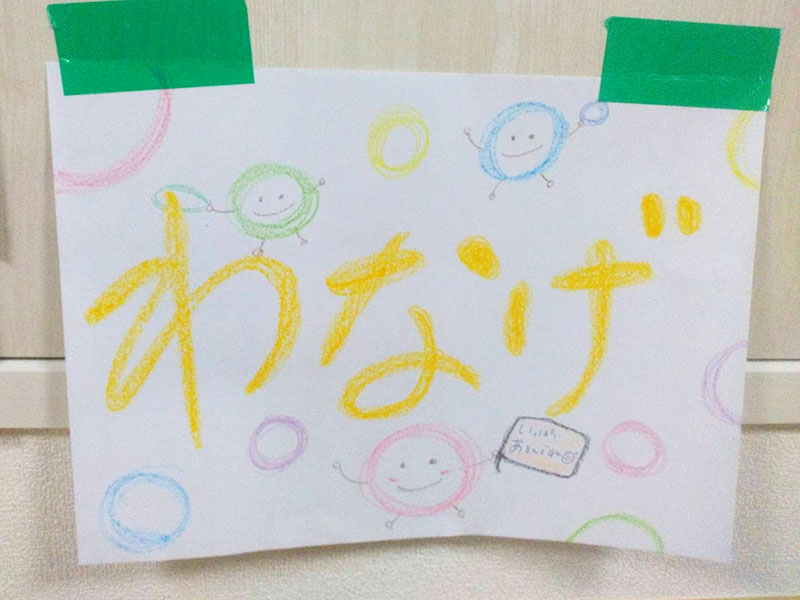 わなげ
いっぱい
あそんでね